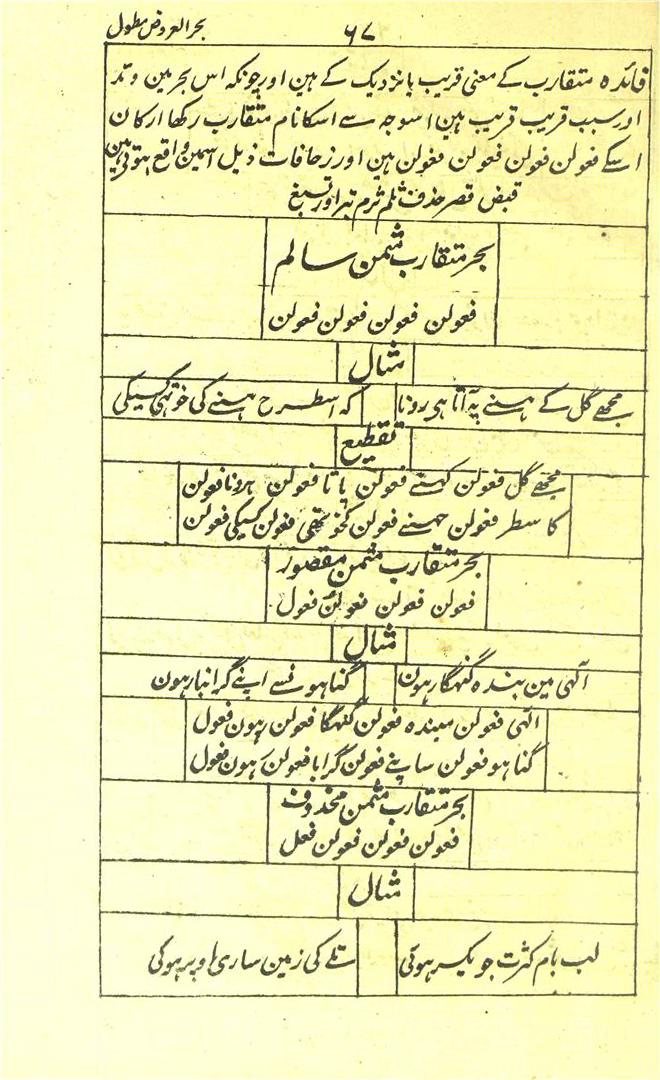 ۶۷ بحر العروض مطول
فائدہ متقارب کے معنی قریب یا نزدیک کے ہین اور چونکہ اس بحر مین وتد
اور سبب قریب قریب ہین اسوجہ سے اسکا نام متقارب رکھا ارکان
اسکے فعولن فعولن فعولن فعولن ہین اور زحافات ذیل اسمین واقع ہوتی ہین
قبض قصر حذف ثلم ثرم بتر اور تسبیغ
بحر متقارب مثمن سالم
فعولن فعولن فعولن فعولن
مثال
مجھے گل کے ہنسنے پہ آتا ہی رونا کہ اسطرح ہنسنے کی خو تھی کسیکی
تقطیع
مجھے گل فعولن کہنسنے فعولن پاتا فعولن ہرونا فعولن
کاسطر فعولن حہنسنے فعولن کخو تھی فعولن کسیکی فعولن
بحر متقارب مثمن مقصور
فعولن فعولن فعولن فعول
مثال
الٰہی مین بندہ گنہگار ہون گناہونسے اپنے گرانبار ہون
الٰہی فعولن مبندہ فعولن گنہگا فعولن رہون فعول
گناہو فعولن ساپنے فعولن گرابا فعولن رہون فعول
بحر متقارب مثمن محذوف
فعولن فعولن فعولن فعل
مثال
لب بام کثرت جو یکسر ہوئی تلے کی زمین ساری اوپر ہوئی